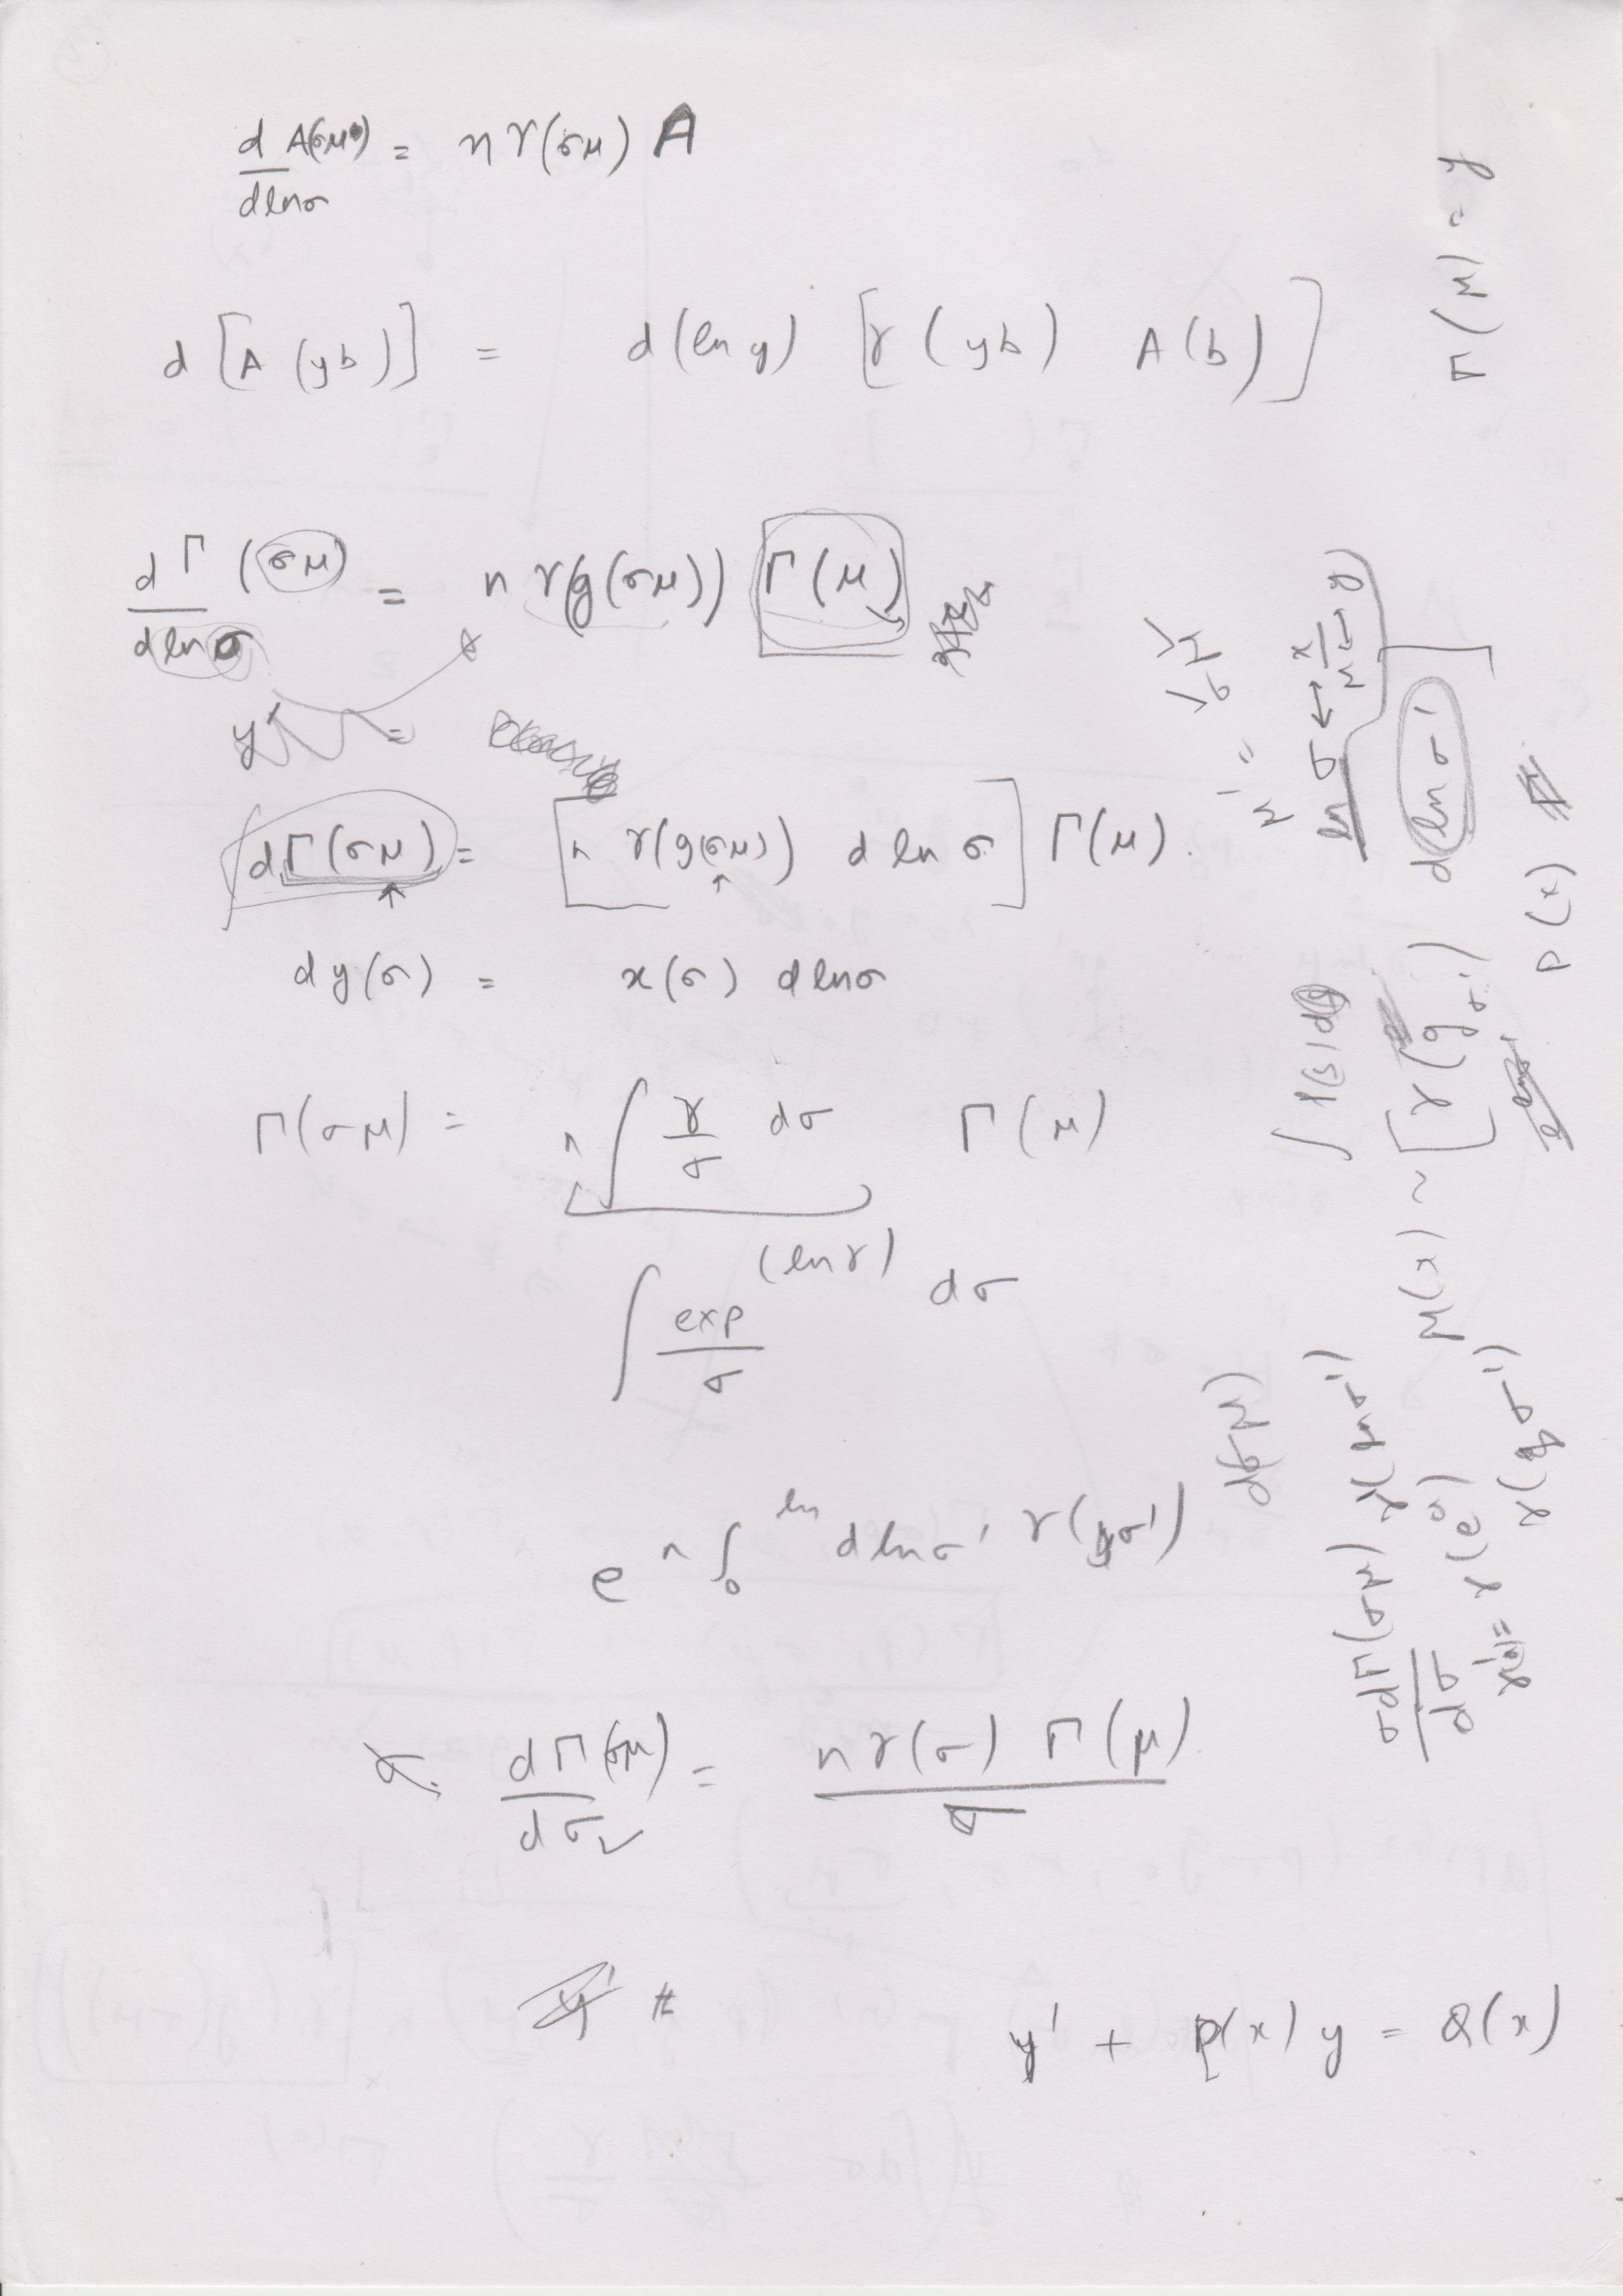 d A(σμ) / d ln σ = n γ(σμ) A
d [A (yb)] = d(ln y) [γ (yb) A(b)]
d Γ (σμ) / d ln σ = n γ(g(σμ)) Γ(μ)
y' =
dΓ(σμ) = [n γ(g(σμ)) d ln σ] Γ(μ).
dy(σ) = x(σ) d ln σ
Γ(σμ) = n ∫ γ/σ dσ Γ(μ)
∫ exp^(ln γ) / σ dσ
e^ n ∫₀^ln d ln σ' γ(gσ')
σ. dΓ(σμ) / dσ = n γ(σ) Γ(μ) / σ
y' #
y' + p(x) y = Q(x)
Γ(μ) = y
ln σ ↔ x
μ ↔ y
μ(x) ~ [γ(g σ') d ln σ']
P(x)
d(σμ)
σ dΓ(σμ) / dσ
γ(e